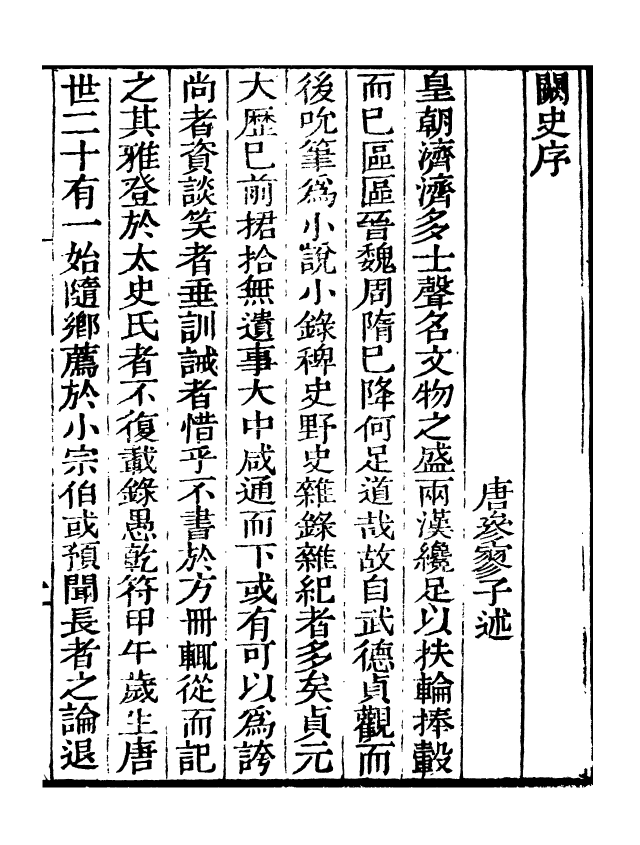 闕史序
唐參寥子述
皇朝濟濟多士聲名文物之盛兩漢纔足以扶輪捧轂
而巳區區晉魏周隋巳降何足道哉故自武德貞觀而
後吮筆爲小說小錄稗史野史雜錄雜紀者多矣貞元
大歷巳前捃拾無遺事大中咸通而下或有可以爲誇
尚者資談笑者垂訓誡者惜乎不書於方冊輒從而記
之其雅登於太史氏者不復載錄愚乾符甲午歲生唐
世二十有一始隨鄉薦於小宗伯或預聞長者之論退